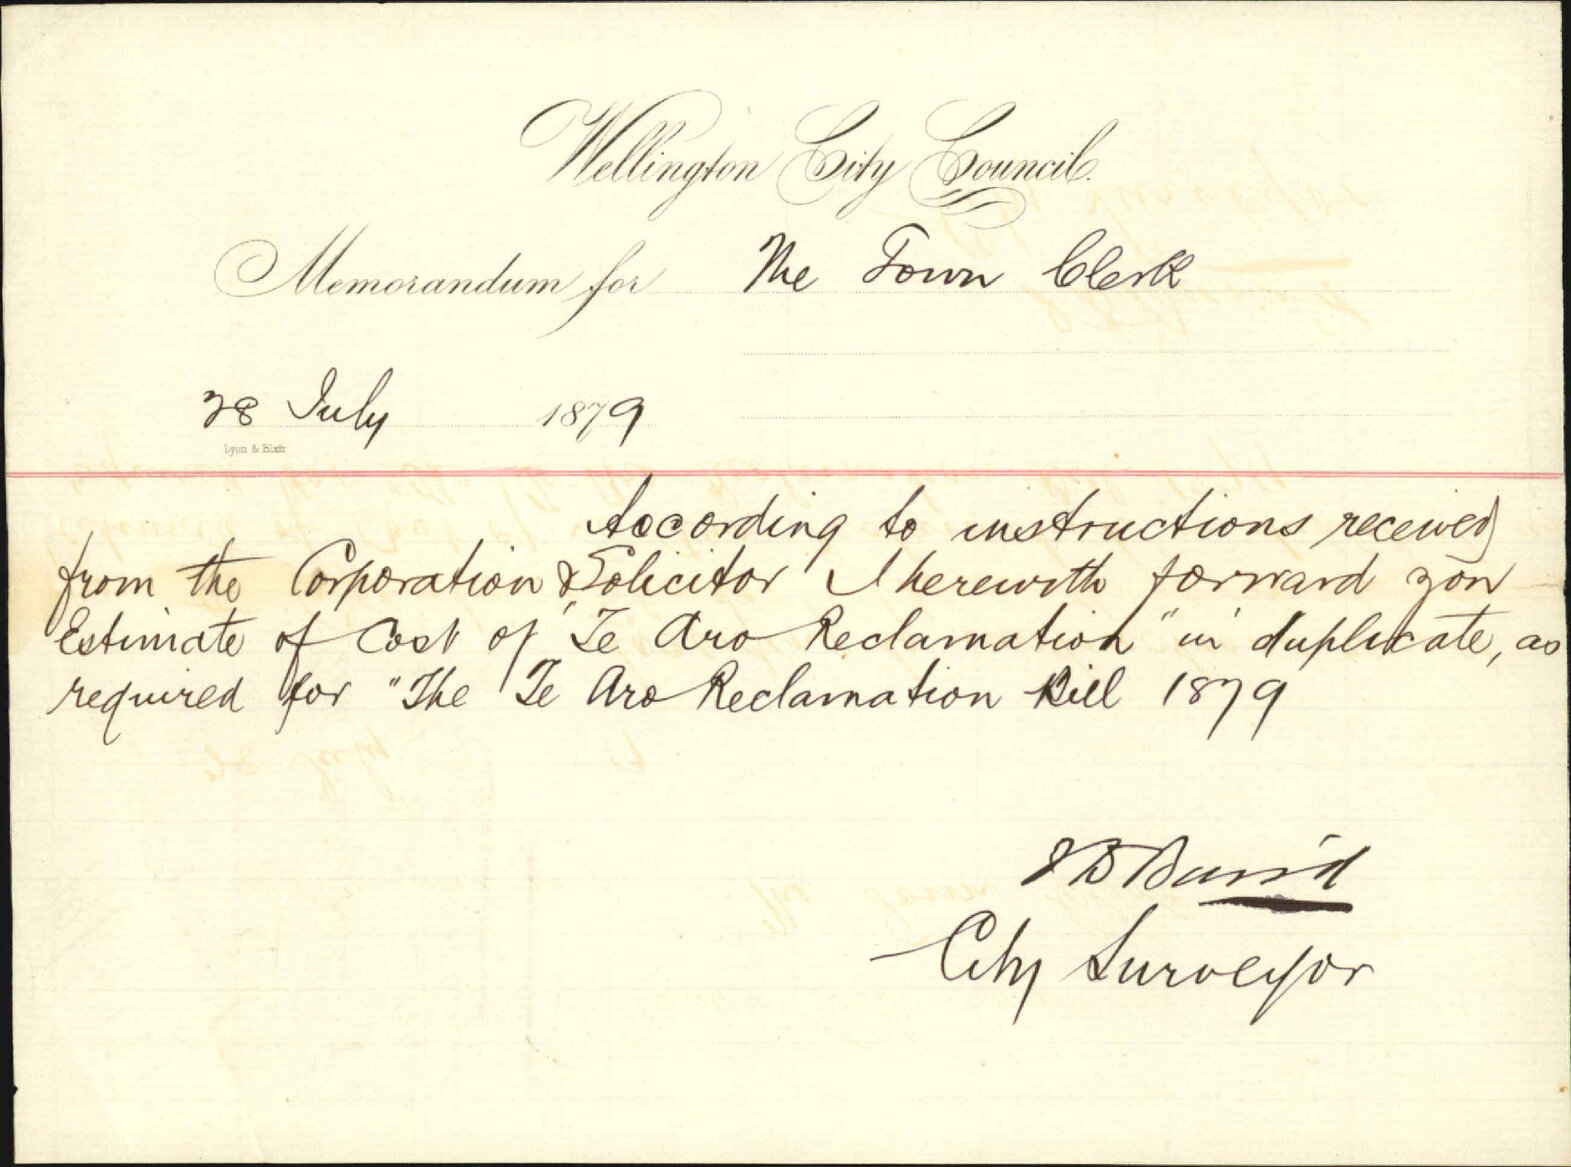 Wellington City Council.
Memorandum for The Town Clerk
28 July 1879
Lyon & Blair
According to instructions received
from the Corporation Solicitor I herewith forward you
Estimate of Cost of "Te Aro Reclamation" in duplicate, as
required for "The Te Aro Reclamation Bill 1879
J D Baird
City Surveyor